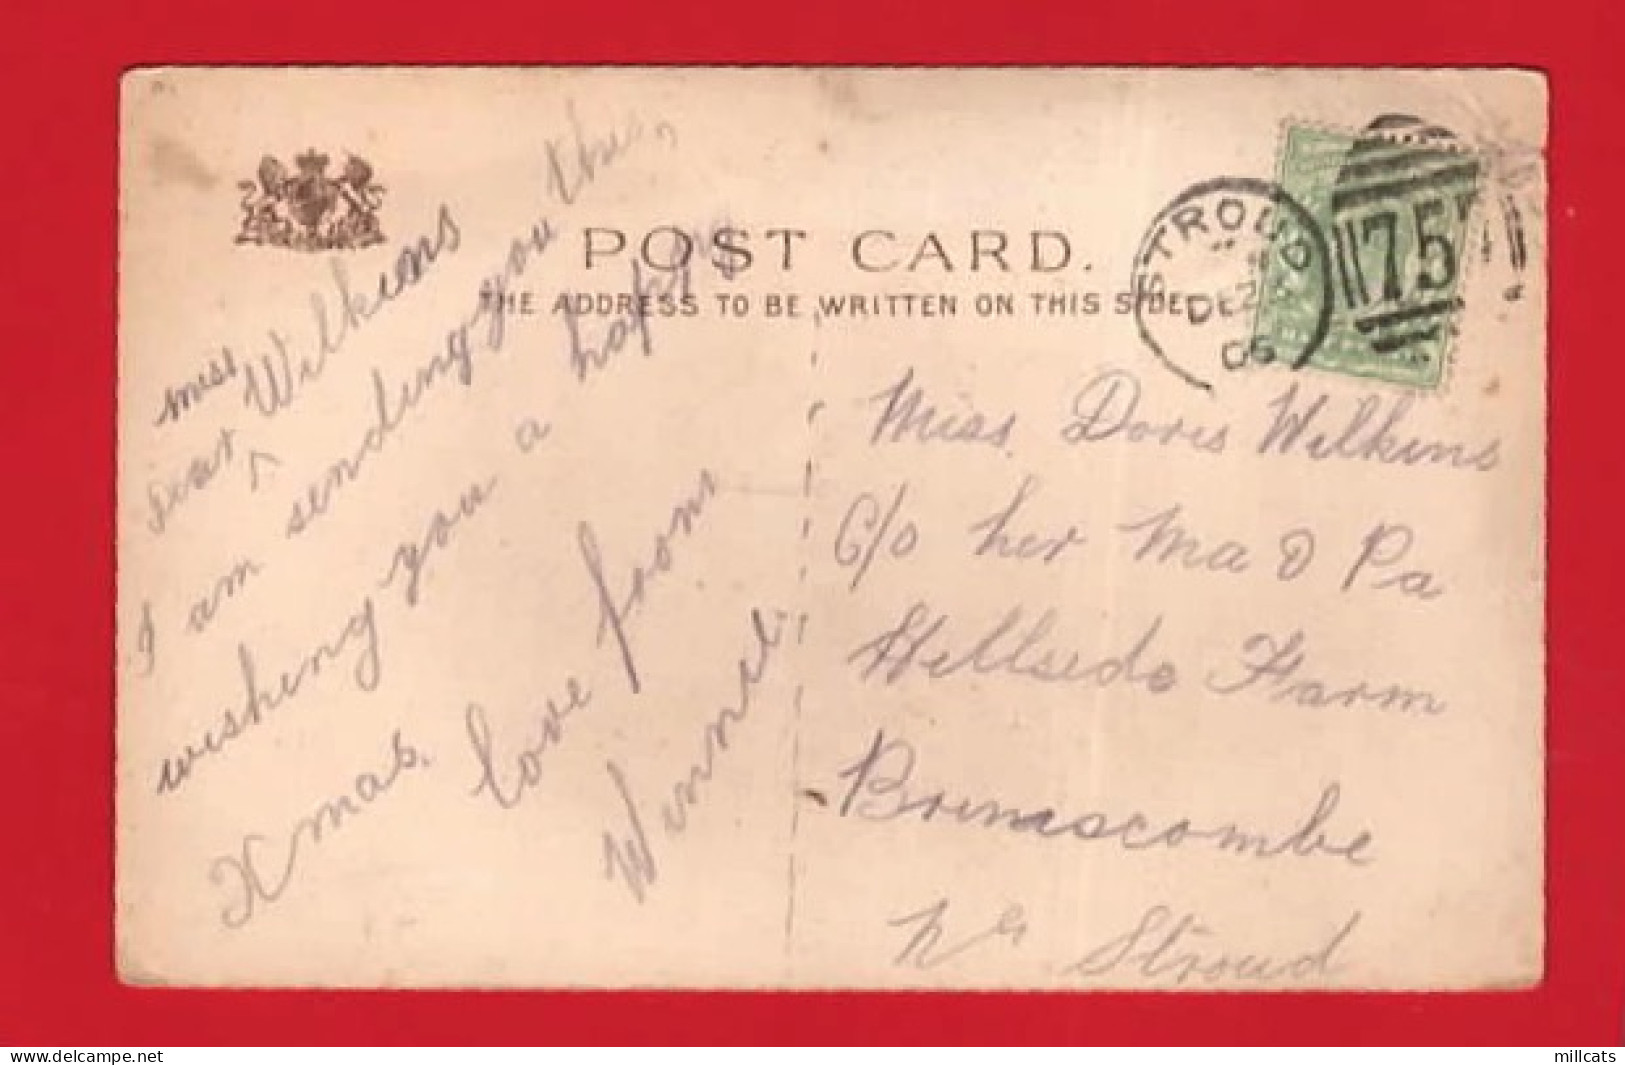 POST CARD.
THE ADDRESS TO BE WRITTEN ON THIS SIDE
STROUD
DE 2
05
75
miss
Dear ^ Wilkins
I am sending you this,
wishing you a happy
Xmas. love from
Winnie
Miss. Doris Wilkins
C/o her Ma & Pa
Hillside Farm
Brimscombe
Nr Stroud
delcampe.net
millcats